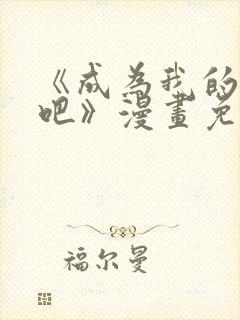 《成为我的
吧》漫畫免
福尔曼